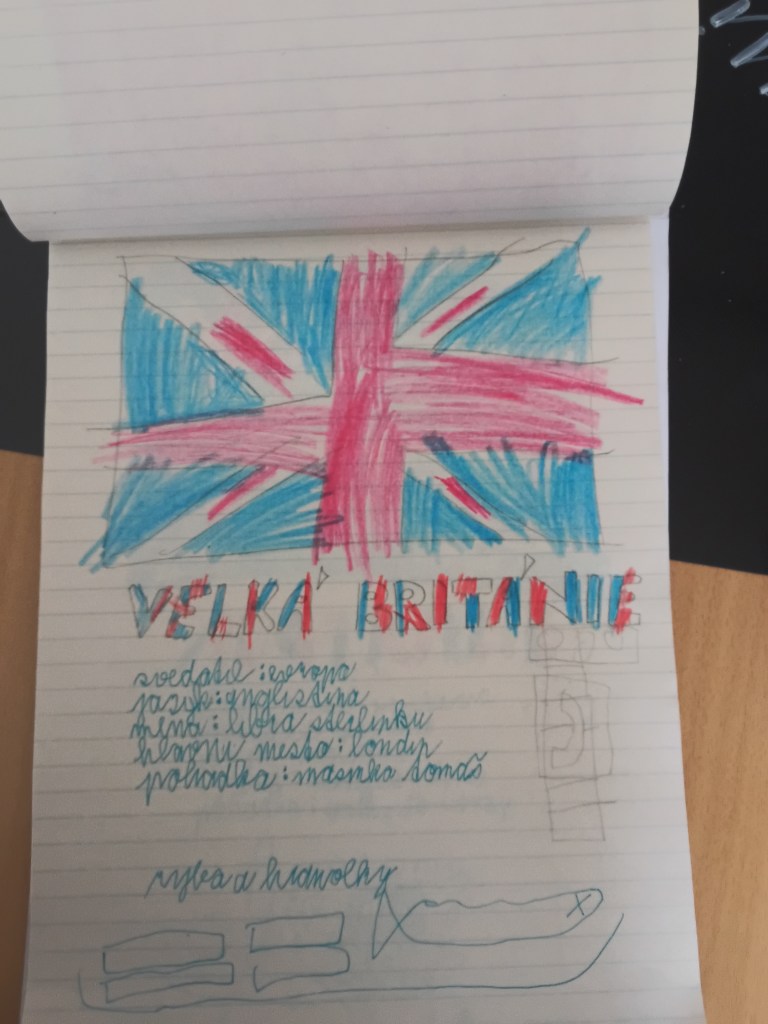 VELKÁ BRITÁNIE
svedatil : evropa
jazyk : anglistina
mena : libra sterlinku
hlavni mesto : londin
pohadka : masinka tomaš
ryba a hranolky